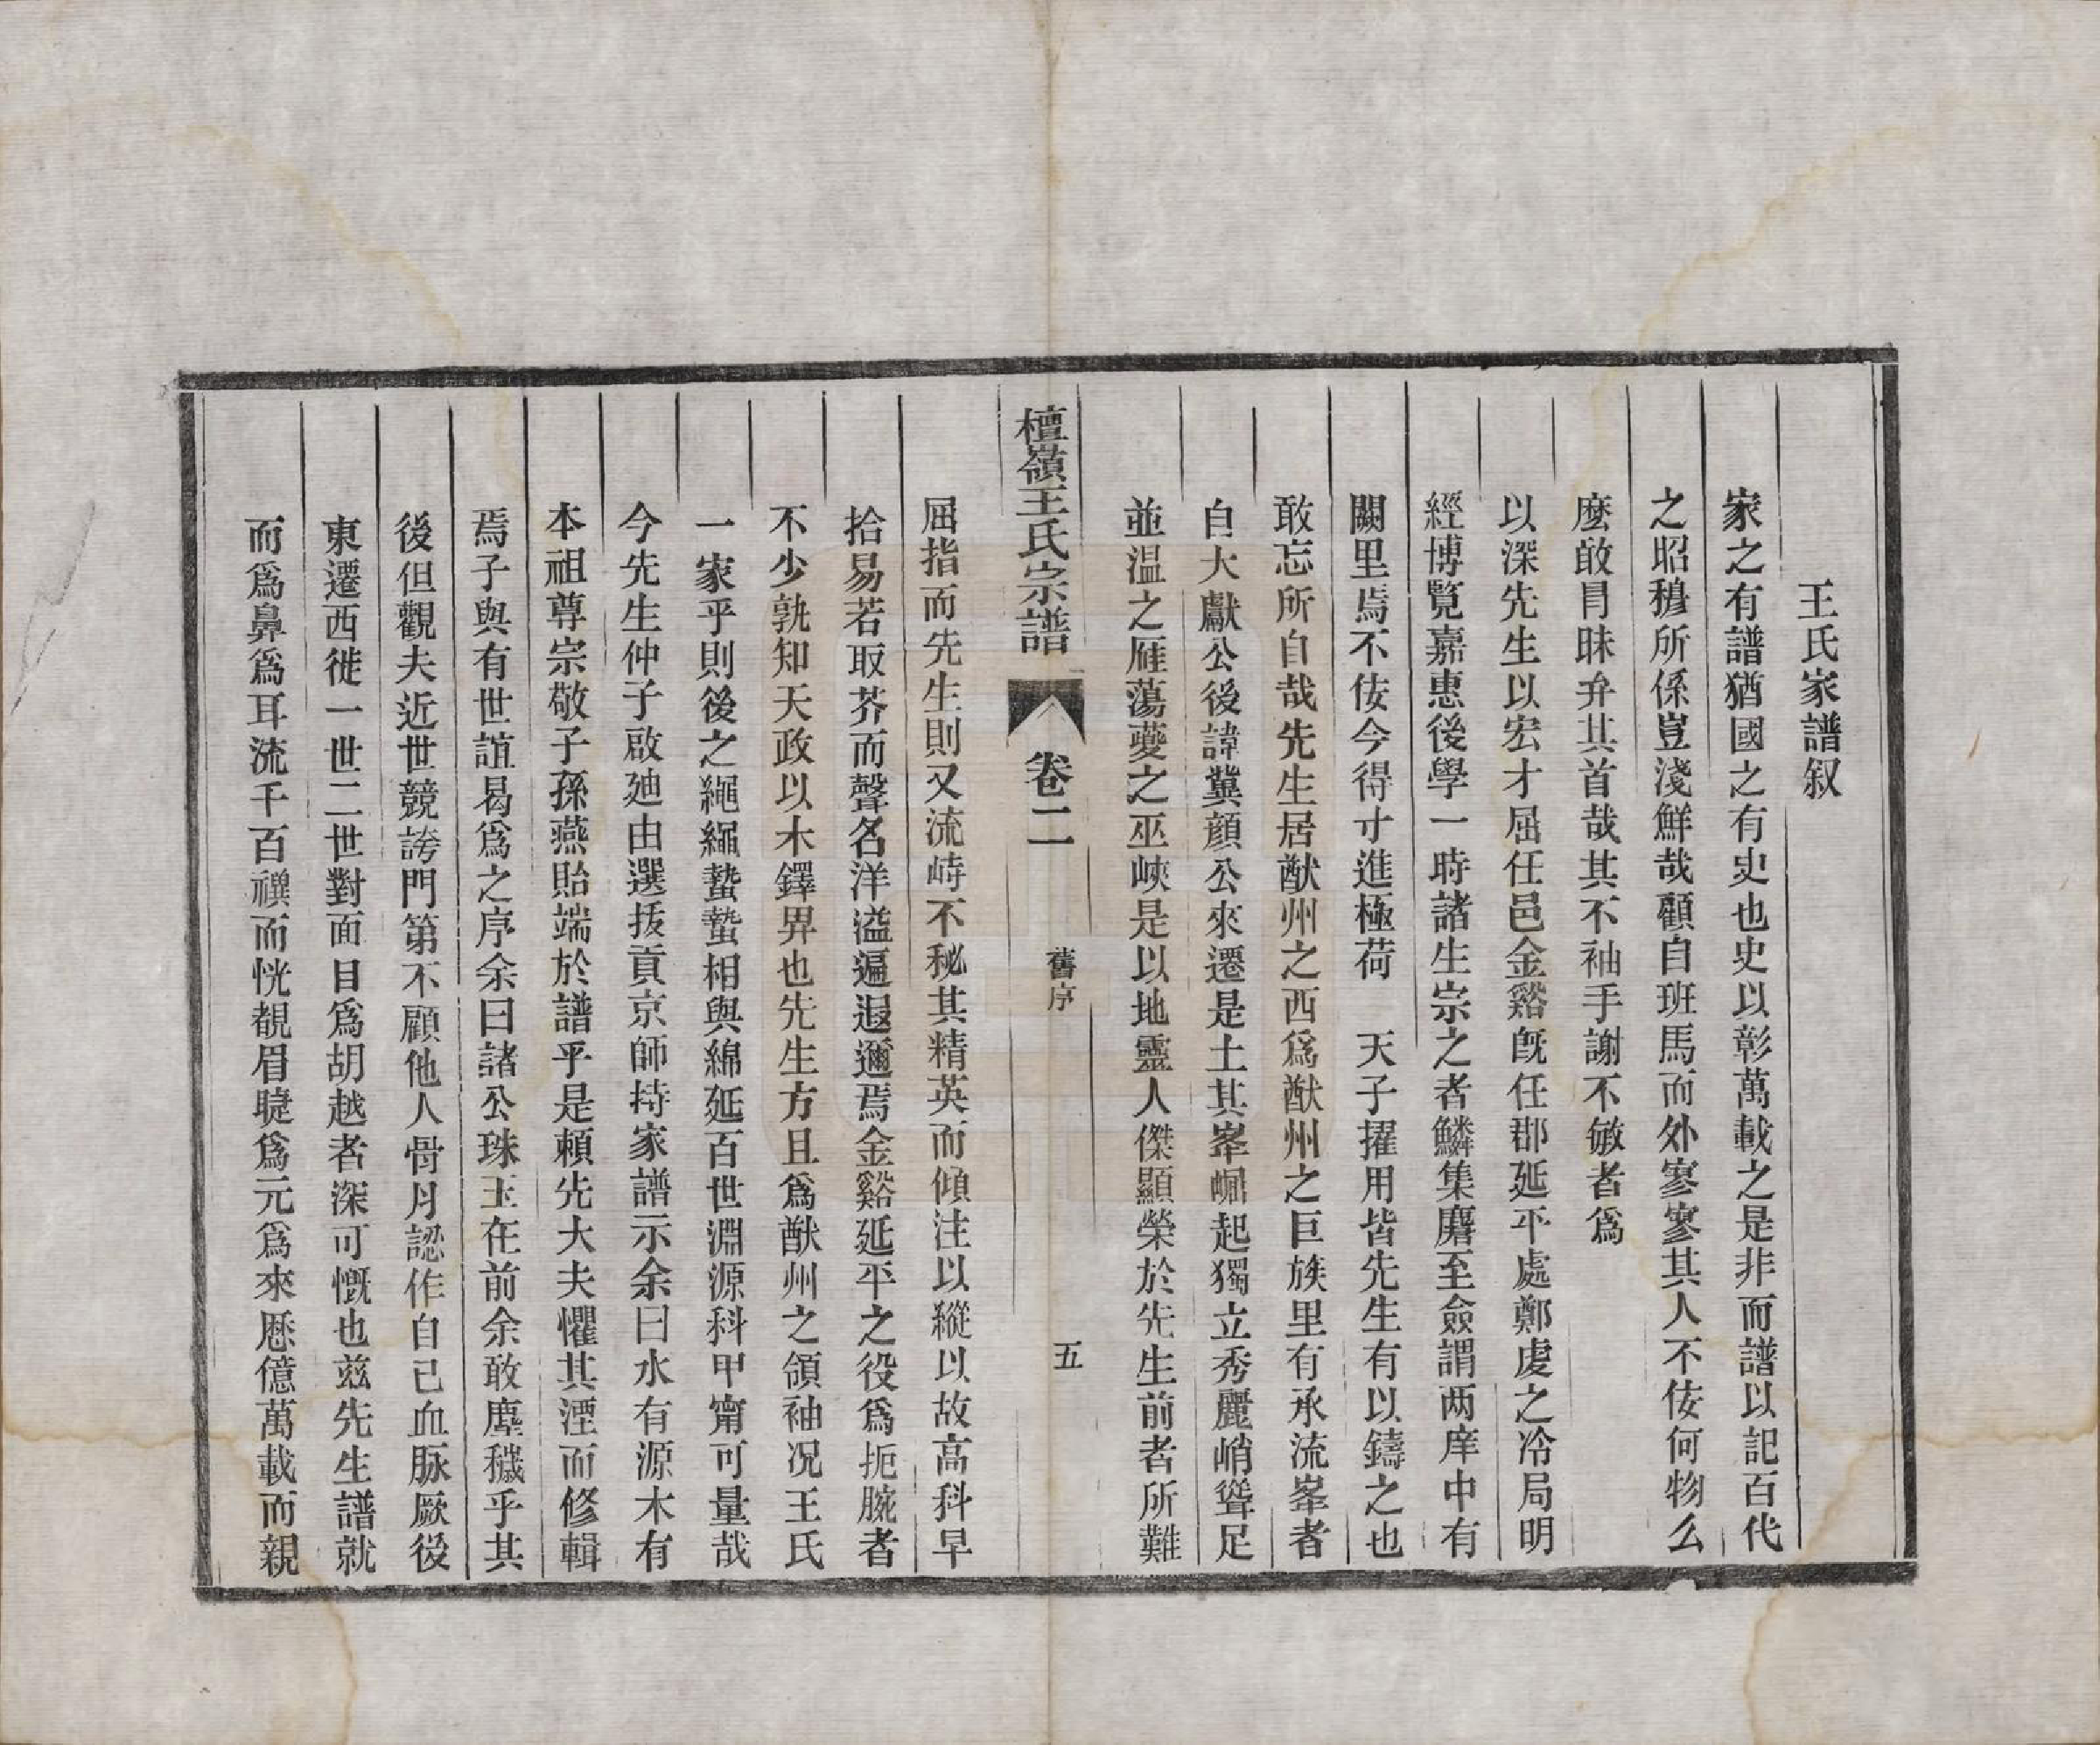 王氏家譜叙
家之有譜猶國之有史也史以彰萬載之是非而譜以記百代
之昭穆所係豈淺鮮哉顧自班馬而外寥寥其人不佞何物么
麽敢冐昧弁其首哉其不袖手謝不敏者爲
以深先生以宏才屈任邑金谿旣任郡延平處鄭虔之冷局明
經博覽嘉惠後學一時諸生宗之者鱗集麕至僉謂两庠中有
闕里焉不佞今得寸進極荷　天子擢用皆先生有以鑄之也
敢忘所自哉先生居猷州之西爲猷州之巨族里有承流峯者
自大獻公後諱冀顔公來遷是土其峯崛起獨立秀麗峭聳足
並温之雁蕩夔之巫峽是以地靈人傑顯榮於先生前者所難
檀嶺王氏宗譜　卷二　舊序　五
屈指而先生則又流峙不秘其精英而傾注以縱以故高科早
拾易若取芥而聲名洋溢遍遐邇焉金谿延平之役爲扼腕者
不少孰知天政以木鐸畀也先生方且爲猷州之領袖况王氏
一家乎則後之繩繩蟄蟄相與綿延百世淵源科甲甯可量哉
今先生仲子啟廸由選拔貢京師持家譜示余曰水有源木有
本祖尊宗敬子孫燕貽端於譜乎是賴先大夫懼其湮而修輯
焉子與有世誼曷爲之序余曰諸公珠玉在前余敢塵穢乎其
後但觀夫近世競誇門第不顧他人骨月認作自己血脉厥後
東遷西徙一世二世對面目爲胡越者深可慨也兹先生譜就
而爲鼻爲耳流千百禩而恍覩眉睫爲元爲來歷億萬載而親